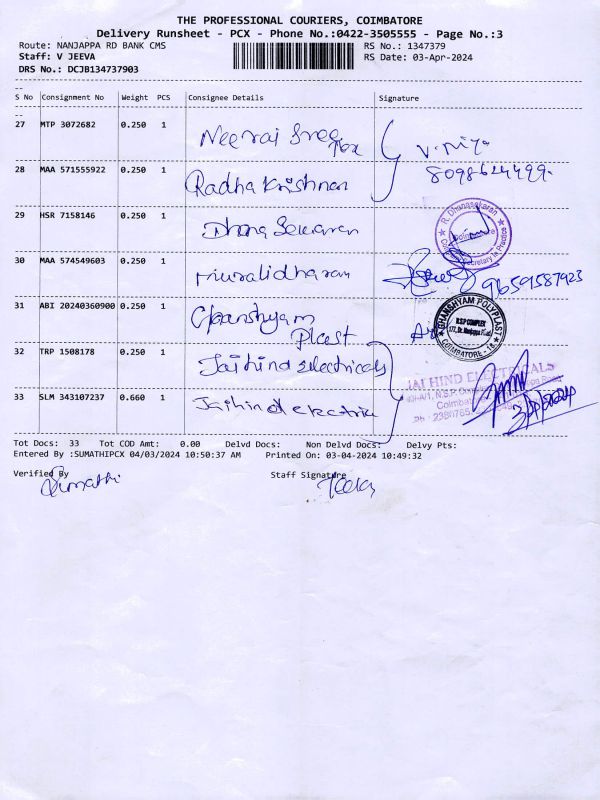 THE PROFESSIONAL COURIERS, COIMBATORE
Delivery Runsheet - PCX - Phone No.:0422-3505555 - Page No.:3
Route: NANJAPPA RD BANK CMS
RS No.: 1347379
Staff: V JEEVA
RS Date: 03-Apr-2024
DRS No.: DCJB134737903
S No Consignment No Weight PCS Consignee Details Signature
27 MTP 3072682 0.250 1 Neeraj Sree
V. Priya
8098624499.
28 MAA 571555922 0.250 1 Radha Krishnan
29 HSR 7158146 0.250 1 Dhana Sekaran
R. Dhanasekaran
30 MAA 574549603 0.250 1 Muralidharan
9659587923
31 ABI 20240360900 0.250 1 Ghanshyam
Plast
GHANSHYAM POLYPLAST
COIMBATORE - 18
32 TRP 1508178 0.250 1 Jaihind electricals
JAI HIND ELECTRICALS
33 SLM 343107237 0.660 1 Jaihind electrical
Tot Docs: 33 Tot COD Amt: 0.00 Delvd Docs: Non Delvd Docs: Delvy Pts:
Entered By :SUMATHIPCX 04/03/2024 10:50:37 AM Printed On: 03-04-2024 10:49:32
Verified By Staff Signature
Sumathi